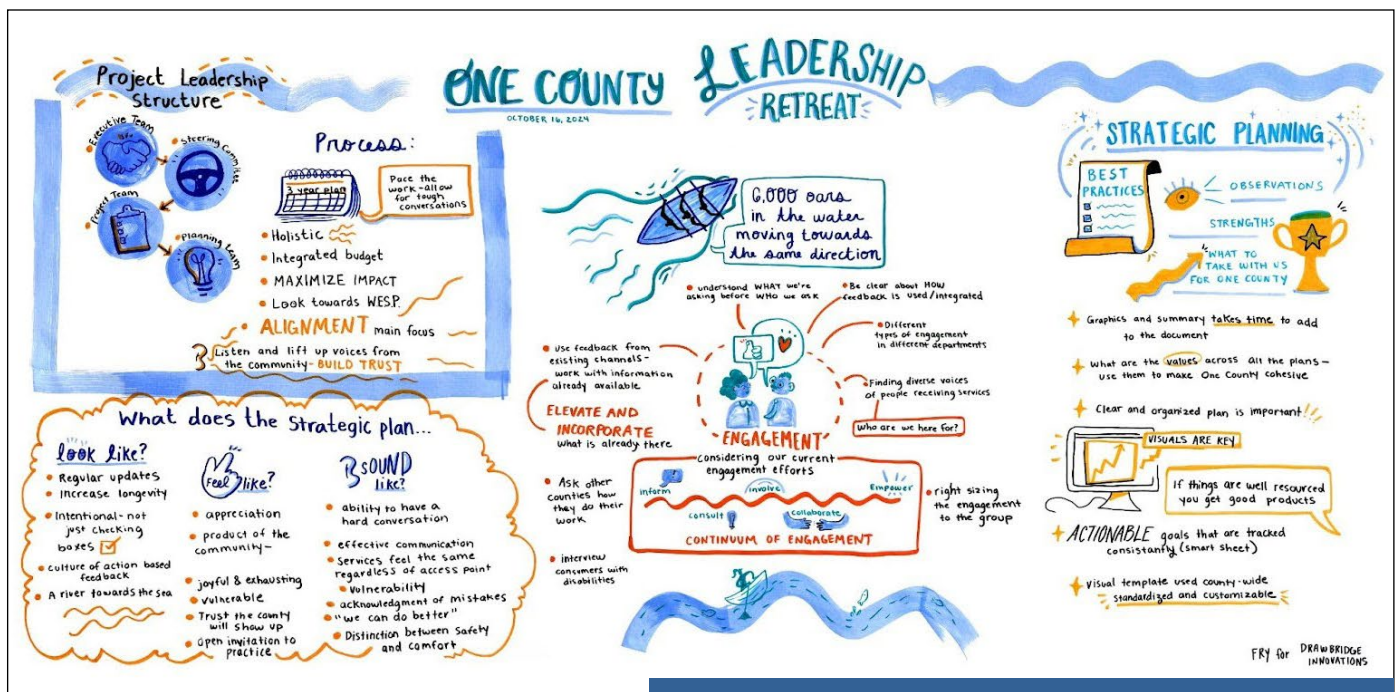 ONE COUNTY
LEADERSHIP
RETREAT
OCTOBER 16, 2024
Project Leadership
Structure
Executive Team
Steering Committee
Project Team
Planning Team
Process:
3 year plan
Pace the
work-allow
for tough
conversations
Holistic
Integrated budget
MAXIMIZE IMPACT
Look towards WESP.
ALIGNMENT main focus
Listen and lift up voices from
the community-BUILD TRUST
What does the Strategic plan...
look like?
Regular updates
Increase longevity
Intentional-not
just checking
boxes
culture of action based
feedback
A river towards the sea
Feel like?
appreciation
product of the
community-
joyful & exhausting
vulnerable
Trust the county
will show up
open invitation to
practice
SOUND
like?
ability to have a
hard conversation
effective communication
Services feel the same
regardless of access point
Vulnerability
acknowledgment of mistakes
"we can do better"
Distinction between safety
and comfort
6,000 oars
in the water
moving towards
the same direction
understand WHAT we're
asking before WHO we ask
Be clear about HOW
feedback is used/integrated
Different
types of engagement
in different departments
use feedback from
existing channels-
work with information
already available
Finding diverse voices
of people receiving services
Who are we here for?
ELEVATE AND
INCORPORATE
what is already there
ENGAGEMENT
Considering our current
engagement efforts
inform
involve
Empower
consult
collaborate
CONTINUUM OF ENGAGEMENT
Ask other
counties how
they do their
work
interview
consumers with
disabilities
right sizing
the engagement
to the group
STRATEGIC PLANNING
BEST
PRACTICES
OBSERVATIONS
STRENGTHS
WHAT TO
TAKE WITH US
FOR ONE COUNTY
Graphics and summary takes time to add
to the document
What are the values across all the plans-
use them to make One County cohesive
Clear and organized plan is important!!!
VISUALS ARE KEY
If things are well resourced
you get good products
ACTIONABLE goals that are tracked
consistantly (smart sheet)
Visual template used county-wide
standardized and customizable
FRY for DRAWBRIDGE
INNOVATIONS